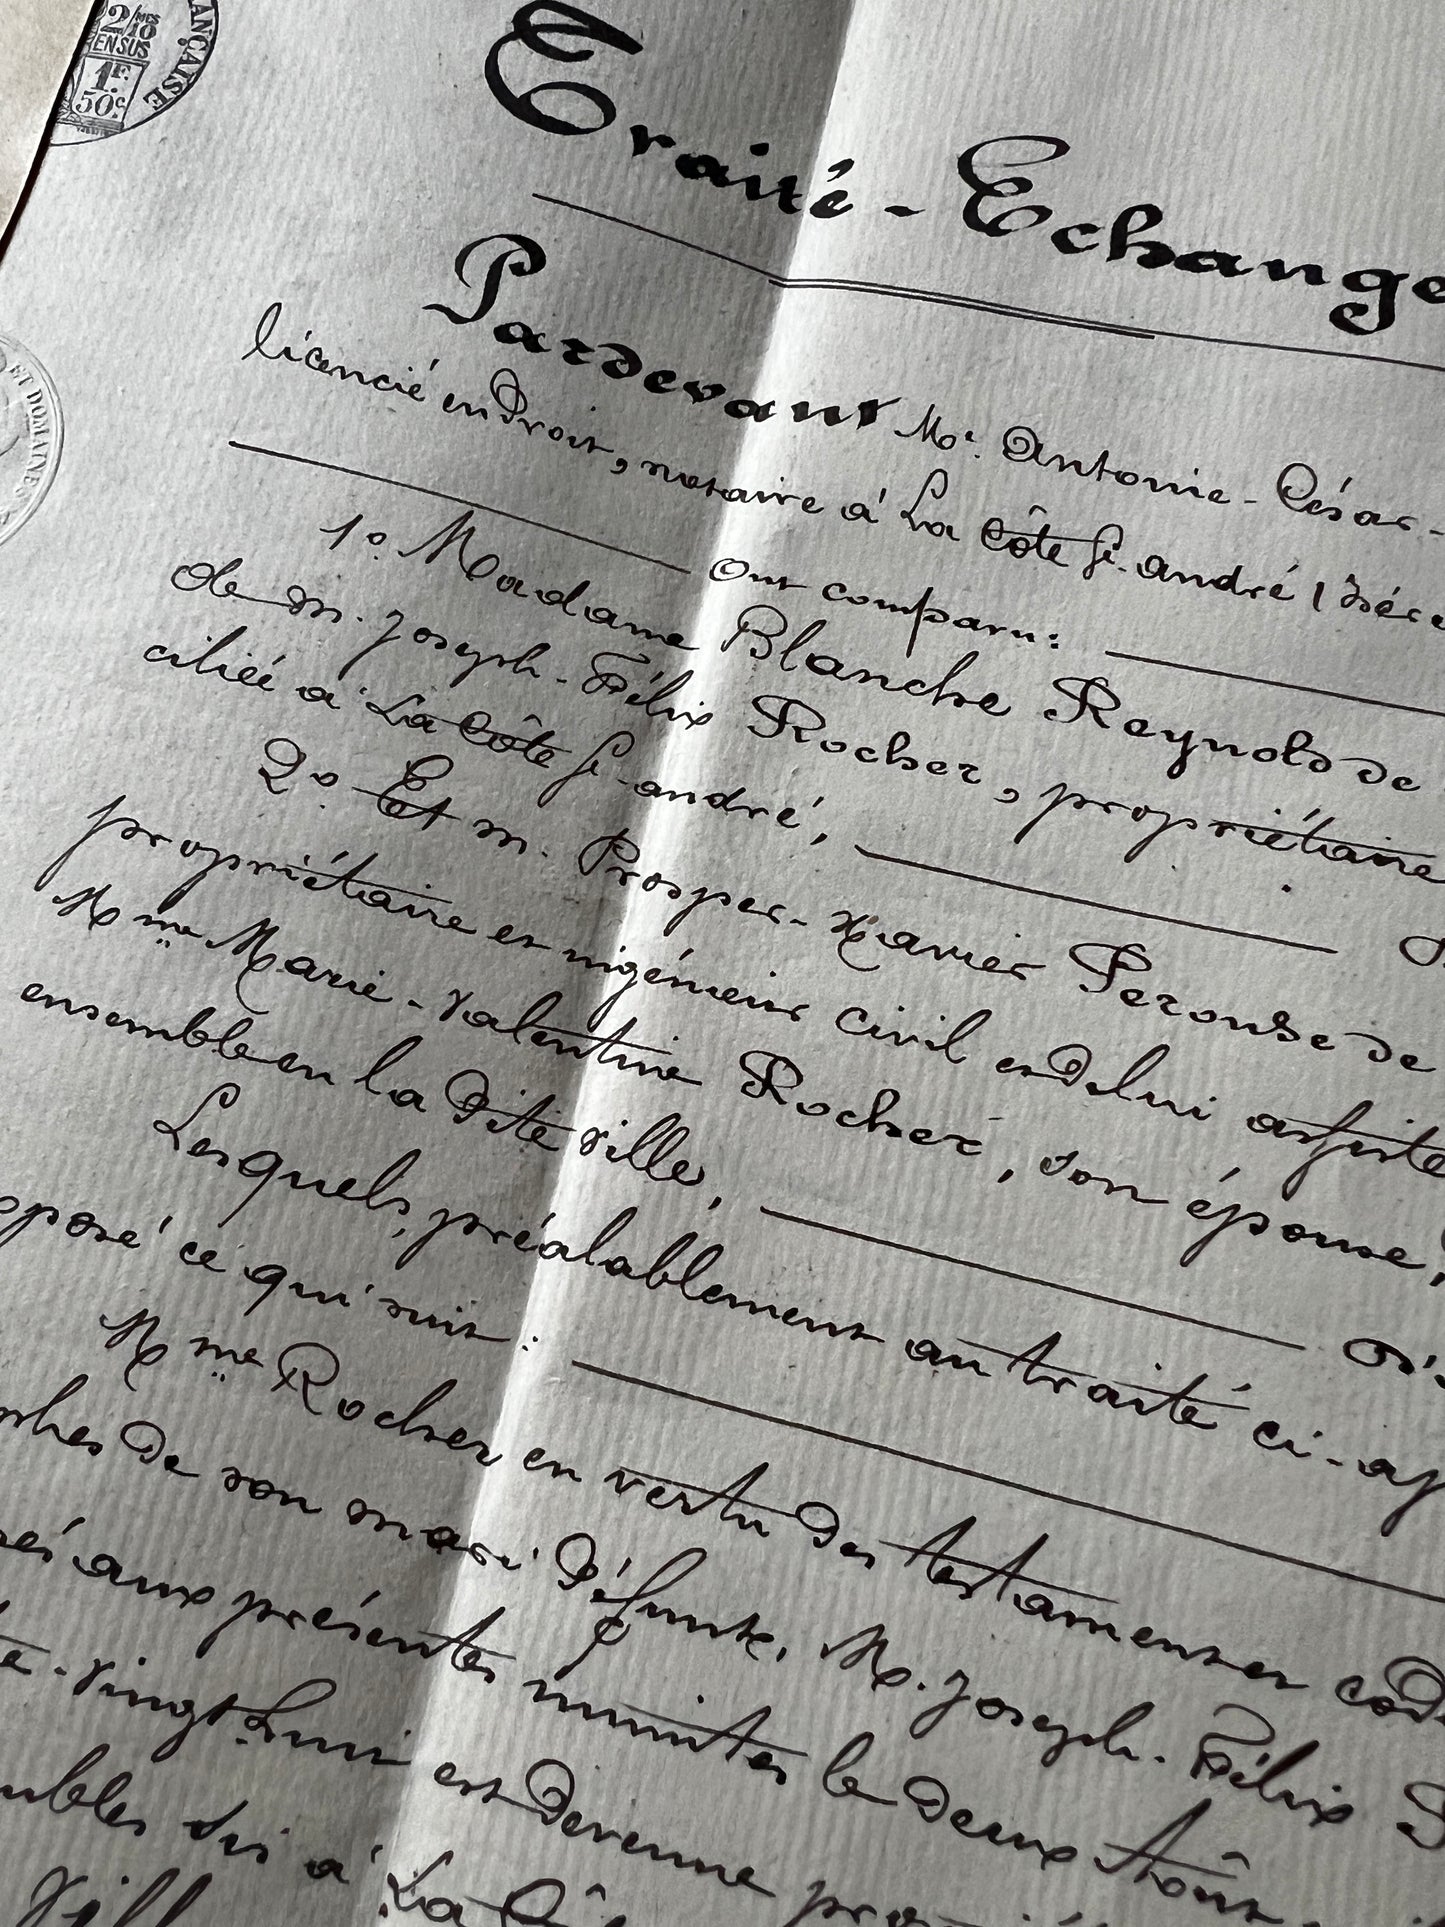 2/10
EN SUS
1F.
50c
ANÇAISE
ET DOMAINES
Traité-Echange
Pardevant Me. Antonie-César-
licencié en droit, notaire à La Côte St. andré (Isère
Ont comparu:
1o. Madame Blanche Reynold de
de m. Joseph-Félix Rocher, propriétaire
ciliée à La Côte St-andré,
2o. Et m. Prosper-Xavier Perouse de
propriétaire et ingénieur civil et de lui assisté
Mme Marie-Valentine Rocher, son épouse,
ensemble en la dite ville,
Lesquels, préalablement au traité ci-ap
posé ce qui suit :
Mme Rocher en vertu des testament et cod
de son mari défunt, M. Joseph-Félix
aux présentes minutes le deux Août
vingt huit est devenue
sis à La Cô
Vill